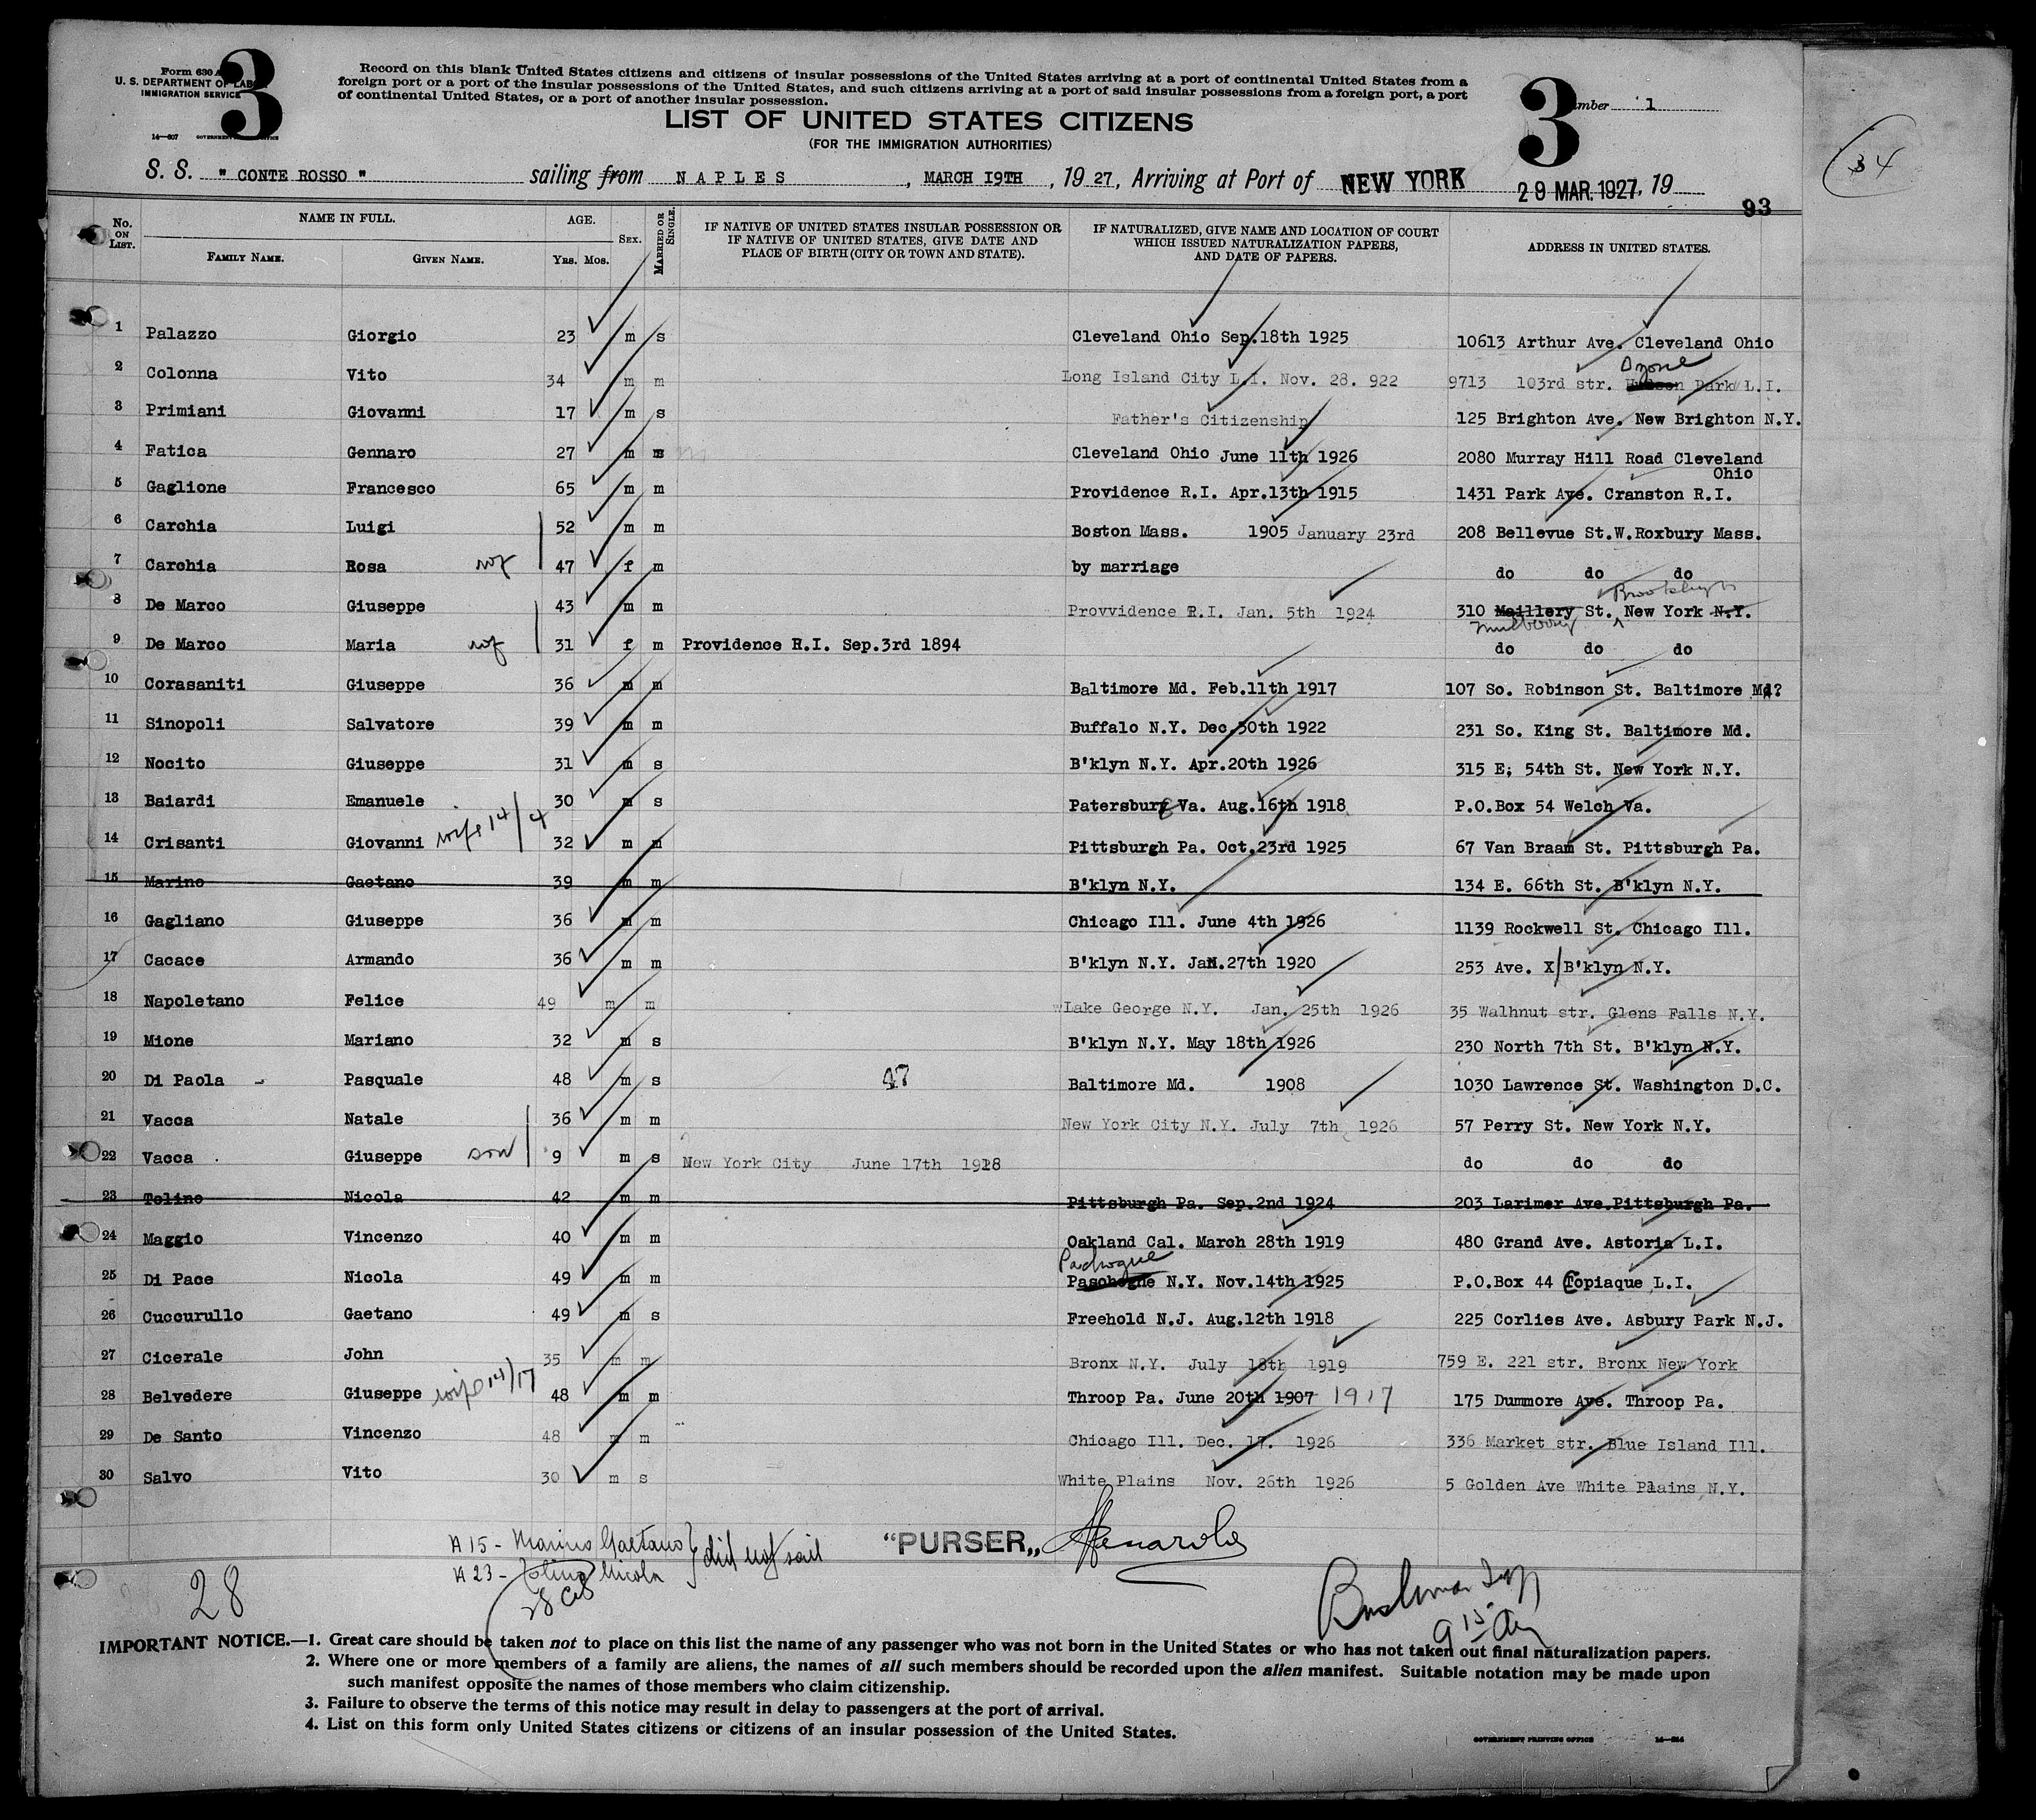 Form 630 A
U. S. DEPARTMENT OF LABOR
IMMIGRATION SERVICE
3
14—607 GOVERNMENT PRINTING OFFICE
Record on this blank United States citizens and citizens of insular possessions of the United States arriving at a port of continental United States from a
foreign port or a port of the insular possessions of the United States, and such citizens arriving at a port of said insular possessions from a foreign port, a port
of continental United States, or a port of another insular possession.
3
mber 1
34
LIST OF UNITED STATES CITIZENS
(FOR THE IMMIGRATION AUTHORITIES)
S. S. " CONTE ROSSO " sailing from NAPLES, MARCH 19TH, 1927, Arriving at Port of NEW YORK 29 MAR. 1927, 19
93
No. ON LIST. NAME IN FULL. FAMILY NAME. GIVEN NAME. AGE. YRS. MOS. SEX. MARRIED OR SINGLE. IF NATIVE OF UNITED STATES INSULAR POSSESSION OR IF NATIVE OF UNITED STATES, GIVE DATE AND PLACE OF BIRTH (CITY OR TOWN AND STATE). IF NATURALIZED, GIVE NAME AND LOCATION OF COURT WHICH ISSUED NATURALIZATION PAPERS, AND DATE OF PAPERS. ADDRESS IN UNITED STATES.
1 Palazzo Giorgio 23 m s Cleveland Ohio Sep.18th 1925 10613 Arthur Ave. Cleveland Ohio
2 Colonna Vito 34 m m Long Island City L.I. Nov. 28. 922 9713 103rd str. Ozone Park L.I.
3 Primiani Giovanni 17 m s Father's Citizenship 125 Brighton Ave. New Brighton N.Y.
4 Fatica Gennaro 27 m s m Cleveland Ohio June 11th 1926 2080 Murray Hill Road Cleveland Ohio
5 Gaglione Francesco 65 m m Providence R.I. Apr.13th 1915 1431 Park Ave. Cranston R.I.
6 Carchia Luigi 52 m m Boston Mass. 1905 January 23rd 208 Bellevue St.W.Roxbury Mass.
7 Carchia Rosa wf 47 f m by marriage do do do
8 De Marco Giuseppe 43 m m Provvidence R.I. Jan. 5th 1924 310 Maillery Mulberry St. Brooklyn New York N.Y.
9 De Marco Maria wf 31 f m Providence R.I. Sep.3rd 1894 do do do
10 Corasaniti Giuseppe 36 m m Baltimore Md. Feb.11th 1917 107 So. Robinson St. Baltimore Md?
11 Sinopoli Salvatore 39 m m Buffalo N.Y. Dec.30th 1922 231 So. King St. Baltimore Md.
12 Nocito Giuseppe 31 m s B'klyn N.Y. Apr.20th 1926 315 E; 54th St. New York N.Y.
13 Baiardi Emanuele 30 m s Patersburg Va. Aug.16th 1918 P.O.Box 54 Welch Va.
14 Crisanti Giovanni wife 14/4 32 m m Pittsburgh Pa. Oct.23rd 1925 67 Van Braam St. Pittsburgh Pa.
15 Marino Gaetano 39 m m B'klyn N.Y. 134 E. 66th St. B'klyn N.Y.
16 Gagliano Giuseppe 36 m m Chicago Ill. June 4th 1926 1139 Rockwell St. Chicago Ill.
17 Cacace Armando 36 m m B'klyn N.Y. Jan.27th 1920 253 Ave. X B'klyn N.Y.
18 Napoletano Felice 49 m m Lake George N.Y. Jan. 25th 1926 35 Walhnut str. Glens Falls N.Y.
19 Mione Mariano 32 m s B'klyn N.Y. May 18th 1926 230 North 7th St. B'klyn N.Y.
20 Di Paola Pasquale 48 m s 47 Baltimore Md. 1908 1030 Lawrence St. Washington D.C.
21 Vacca Natale 36 m m New York City N.Y. July 7th 1926 57 Perry St. New York N.Y.
22 Vacca Giuseppe son 9 m s New York City June 17th 1918 do do do
23 Tolino Nicola 42 m m Pittsburgh Pa. Sep.2nd 1924 203 Larimer Ave.Pittsburgh Pa.
24 Maggio Vincenzo 40 m m Oakland Cal. March 28th 1919 480 Grand Ave. Astoria L.I.
25 Di Pace Nicola 49 m m Pachogue N.Y. Nov.14th 1925 P.O.Box 44 Copiaque L.I.
26 Cuccurullo Gaetano 49 m s Freehold N.J. Aug.12th 1918 225 Corlies Ave. Asbury Park N.J.
27 Cicerale John 35 m m Bronx N.Y. July 18th 1919 759 E. 221 str. Bronx New York
28 Belvedere Giuseppe wife 14/17 48 m m Throop Pa. June 20th 1907 1917 175 Dummore Ave. Throop Pa.
29 De Santo Vincenzo 48 m m Chicago Ill. Dec. 17. 1926 336 Market str. Blue Island Ill.
30 Salvo Vito 30 m s White Plains Nov. 26th 1926 5 Golden Ave White Plains N.Y.
N 15 - Marino Gaetano
N 23 - Tolino Nicola } did not sail
"PURSER„
28
28 Cit
9 15
IMPORTANT NOTICE.—1. Great care should be taken not to place on this list the name of any passenger who was not born in the United States or who has not taken out final naturalization papers.
2. Where one or more members of a family are aliens, the names of all such members should be recorded upon the alien manifest. Suitable notation may be made upon
such manifest opposite the names of those members who claim citizenship.
3. Failure to observe the terms of this notice may result in delay to passengers at the port of arrival.
4. List on this form only United States citizens or citizens of an insular possession of the United States.
GOVERNMENT PRINTING OFFICE